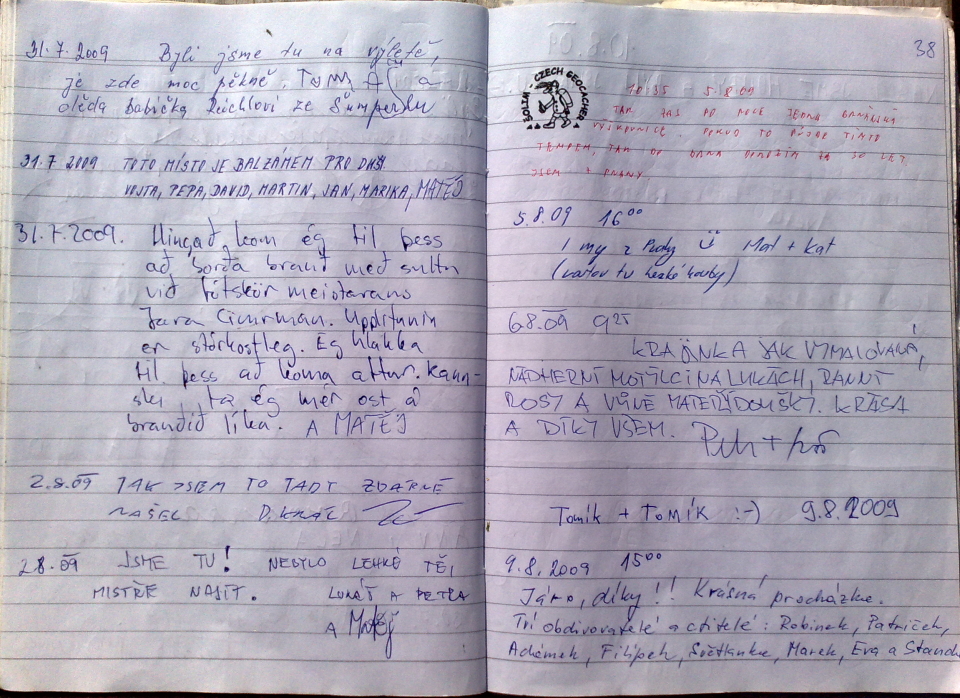 31.7.2009 Byli jsme tu na výletě,
je zde moc pěkně, Tom a
děda babička ze Šumperku
31.7 2009 TOTO MÍSTO JE BALZÁMEM PRO DUŠI
VOJTA, PEPA, DAVID, MARTIN, JAN, MARIKA, MATĚJ
31.7.2009. Hingað kom ég til þess
að borða brauð með sultu
við fótskör meistarans
Jara Cimrman. Upplifunin
er stórkostleg. Ég hlakka
til þess að koma aftur. Kann-
ski ég mér ost á
brauðið líka. A MATĚJ
2.8.09 TAK JSEM TO TADY ZDÁRNĚ
NAŠEL D. KRÁL
2.8.09 JSME TU! NEBYLO LEHKÉ TĚ,
MISTŘE NAJÍT. LUKÁŠ A PETRA
A Matěj
38
BOLIM - CZECH GEOCACHER
10:35 5.8.09
TAK ZAS PO ROCE JEDNA
. POKUD TO PŮJDE TÍMTO
TEMPEM, TAK DO ZA 30 LET
JSEM
5.8.09 16⁰⁰
I my z Prahy Ü Mat + Kat
(rostou tu hezké houby)
6.8.09 9²⁵
KRAJINKA JAK VYMALOVANÁ,
NÁDHERNÍ MOTÝLCI NA LUKÁCH, RANNÍ
ROSY A VŮNĚ MATEŘÍDOUŠKY. KRÁSA
A DÍKY VŠEM.
Tomík + TOMÍK :-) 9.8.2009
9.8.2009 15⁰⁰
Járo, díky!! Krásná procházka.
Tví obdivovatelé a ctitelé: Robinek, Patriček,
Adámek, Filípek, Světlanka, Marek, Eva a Standa